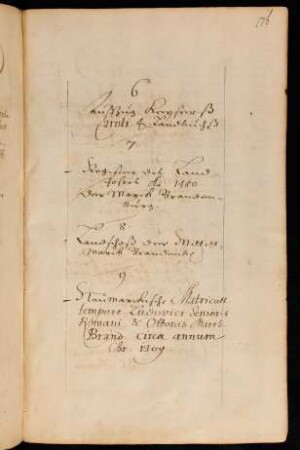 6
Außzug Kaysers
Caroli 4 Landbuchß
7
Register des Land-
schoßes de 1480
Der Marck Branden-
burg.
8
Landschoß der Mittel
Marck Brandenb.
9
Neumarckische Matricul
tempore Ludovici Senioris
Romani & Ottonis March.
Brand. circa annum